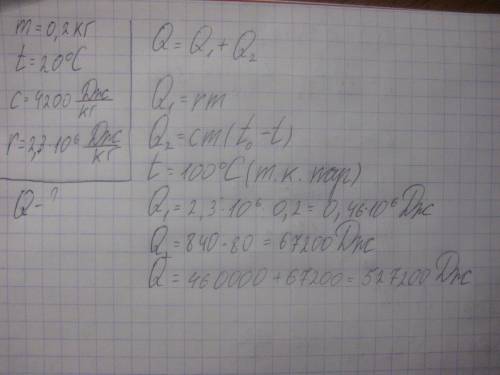 m=0,2 кг
t=20°C
c=4200 Дж/кг
r=2,3·10⁶ Дж/кг
Q-?
Q=Q₁+Q₂
Q₁=rm
Q₂=cm(t₀-t)
t=100°C(т.к. пар)
Q₁=2,3·10⁶·0,2=0,46·10⁶ Дж
Q₂=840·80=67200 Дж
Q=460000+67200=527200 Дж